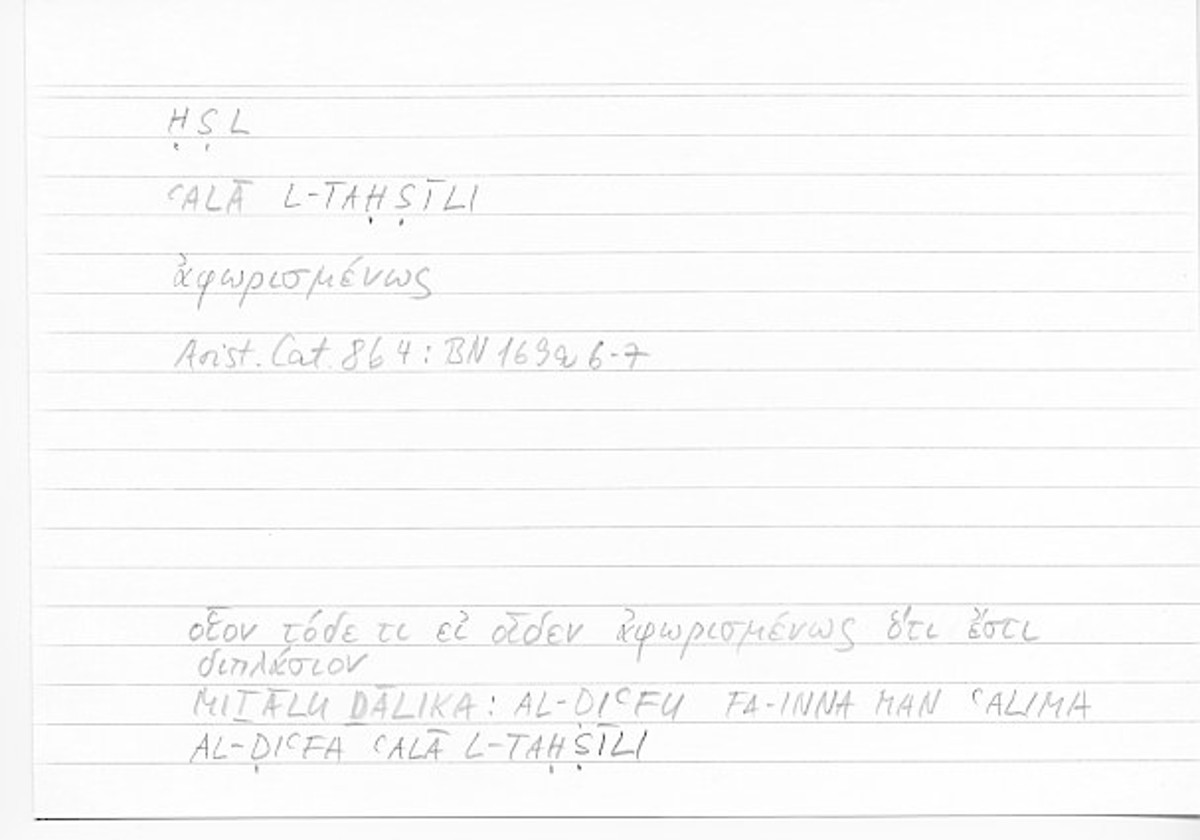 Ḥ Ṣ L
ʿALĀ L-TAḤṢĪLI
ἀφωρισμένως
Arist. Cat. 8b4: BN 169a 6-7
οἷον τόδε τι εἰ οἶδεν ἀφωρισμένως ὅτι ἔστι
διπλάσιον
MIṮĀLU ḎĀLIKA: AL-ḌIʿFU FA-INNA MAN ʿALIMA
AL-ḌIʿFA ʿALĀ L-TAḤṢĪLI